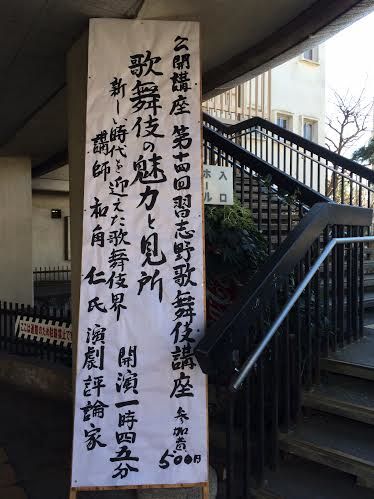 公開講座 第十四回 習志野歌舞伎講座 参加費500円
歌舞伎の魅力と見所
新しい時代を迎えた歌舞伎界
開演一時四五分
講師 和角 仁氏 演劇評論家
入口
ホール
ここは通路のため